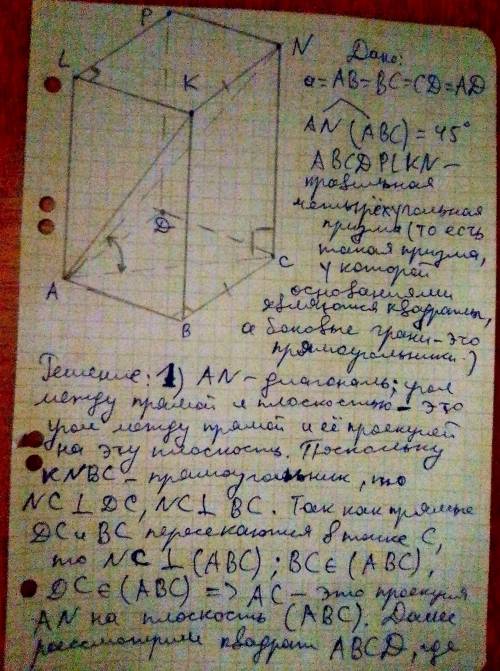 P
L
N
K
D
A
C
B
Дано:
a=AB=BC=CD=AD
AN (ABC) = 45°
ABCDPLKN -
правильная
четырёхугольная
призма (то есть
такая призма,
у которой
основаниями
являются квадраты,
а боковые грани - это
прямоугольники.)
Решение: 1) AN - диагональ; угол
между прямой и плоскостью - это
угол между прямой и её проекцией
на эту плоскость. Поскольку
KNBC - прямоугольник, то
NC ⊥ DC, NC ⊥ BC. Так как прямые
DC и BC пересекаются в точке C,
то NC ⊥ (ABC); BC ∈ (ABC),
DC ∈ (ABC) => AC - это проекция
AN на плоскость (ABC). Далее
рассмотрим квадрат ABCD, где